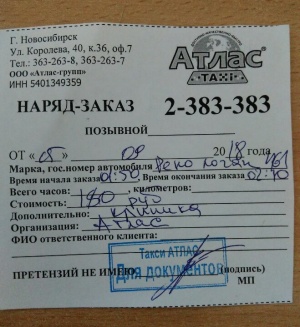 Г. Новосибирск
Ул. Королева, 40, к.36, оф.7
Тел.: 363-263-8, 363-263-7
ООО «Атлас-групп»
ИНН 5401349359
Атлас
TAXI
НАРЯД-ЗАКАЗ 2-383-383
ПОЗЫВНОЙ
ОТ «08» 09 2018 года
Марка, гос.номер автомобиля Рено Логан 461
Время начала заказа 01:30 Время окончания заказа
Всего часов: , километров:
Стоимость: 180 руб
Дополнительно: клиника
Организация: Атлас
ФИО ответственного клиента:
Такси АТЛАС
Для документов
ПРЕТЕНЗИЙ НЕ ИМЕЮ (подпись)
МП